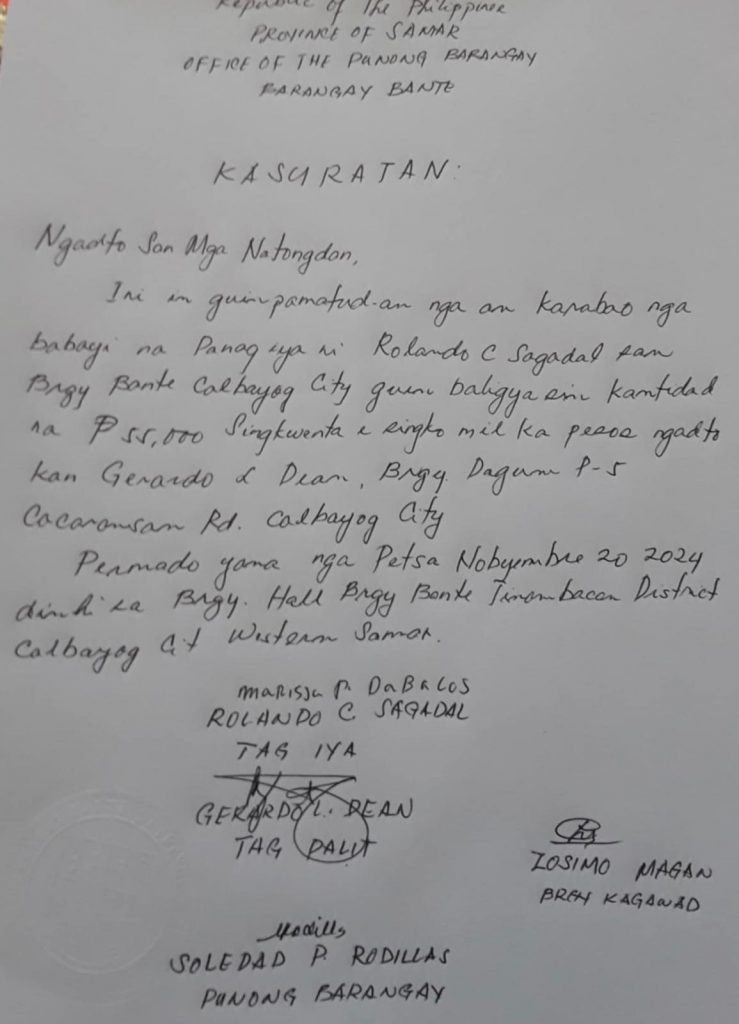 Republic of The Philippine
PROVINCE OF SAMAR
OFFICE OF THE PUNONG BARANGAY
BARANGAY BANTE
KASURATAN:
Ngadto San Mga Natongdan,
Ini in guinpamatud-an nga an karabao nga
babayi na Panag iya ni Rolando C Sagadal san
Brgy Bante Calbayog City guin baligya sin kantidad
na ₱ 55,000 Singkwenta e singko mil ka pesos ngadto
kan Gerardo L Dean, Brgy. Dagum P-5
Cacaransan Rd. Calbayog City
Permado yana nga Petsa Nobyembre 20 2024
dinhi sa Brgy. Hall Brgy Bante Tinambacan District
Calbayog Cit Western Samar.
MARISSA P. DABALOS
ROLANDO C SAGADAL
TAG IYA
GERARDO L. DEAN
TAG PALIT
ZOSIMO MAGAN
BRGY KAGAWAD
SOLEDAD P. RODILLAS
PUNONG BARANGAY